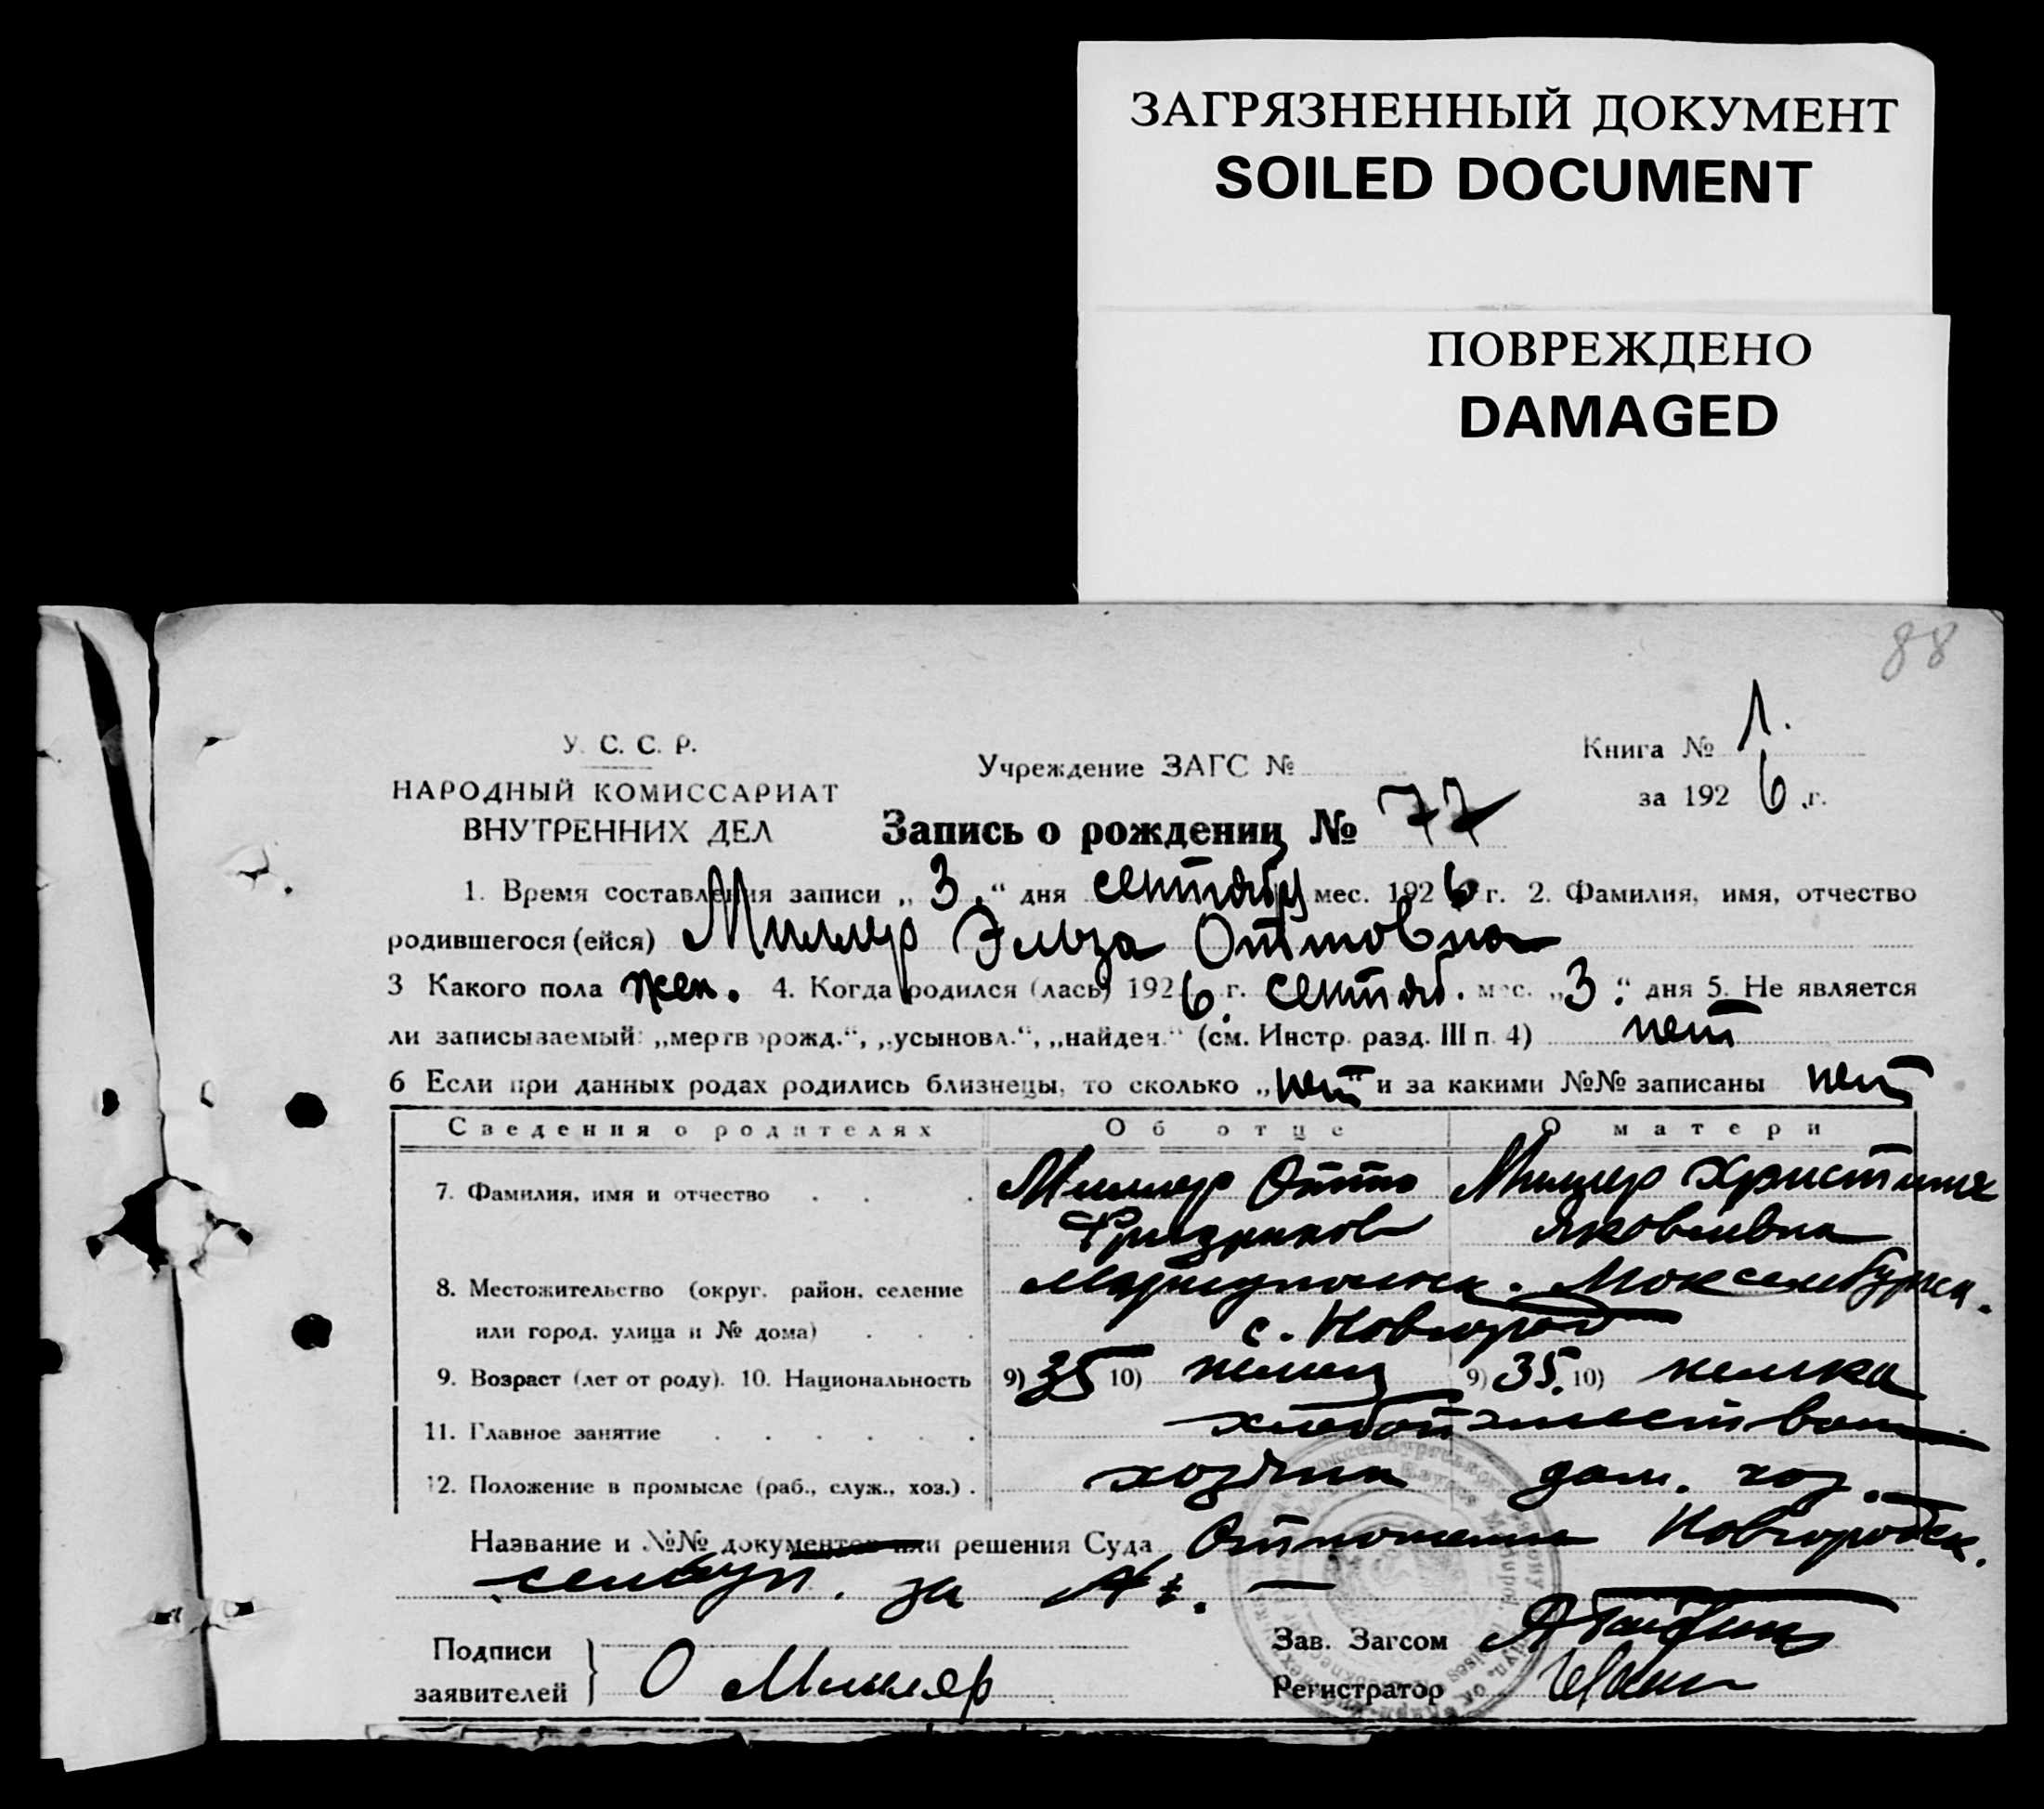 ЗАГРЯЗНЕННЫЙ ДОКУМЕНТ
SOILED DOCUMENT
ПОВРЕЖДЕНО
DAMAGED
88
У. С. С. Р.
НАРОДНЫЙ КОМИССАРИАТ
ВНУТРЕННИХ ДЕЛ
Учреждение ЗАГС №
Книга № 1.
за 1926 г.
Запись о рождении № 77
1. Время составления записи „3.“ дня сентября мес. 1926 г. 2. Фамилия, имя, отчество
родившегося (ейся) Миллер Эльза Оттовна
3 Какого пола жен. 4. Когда родился (лась) 1926 г. сентяб. мес. „3.“ дня 5. Не является
ли записываемый: „мертворожд.“, „усыновл.“, „найден.“ (см. Инстр. разд. III п. 4) нет
6 Если при данных родах родились близнецы, то сколько „нет“ и за какими №№ записаны нет
Сведения о родителях Об отце О матери
7. Фамилия, имя и отчество Миллер Отто Миллер Христина
Фридрихов Яковлевна
8. Местожительство (округ, район, селение Мариупольск. Люксембургск.
или город, улица и № дома) с. Новгород
9. Возраст (лет от роду). 10. Национальность 9) 35 10) немец 9) 35. 10) немка
11. Главное занятие хлебопашество
12. Положение в промысле (раб., служ., хоз.) хозяин дом. хоз.
Название и №№ документов или решения Суда Отношение Новгородск.
сельуп. за №.
Подписи
заявителей О Миллер
Зав. Загсом
Регистратор